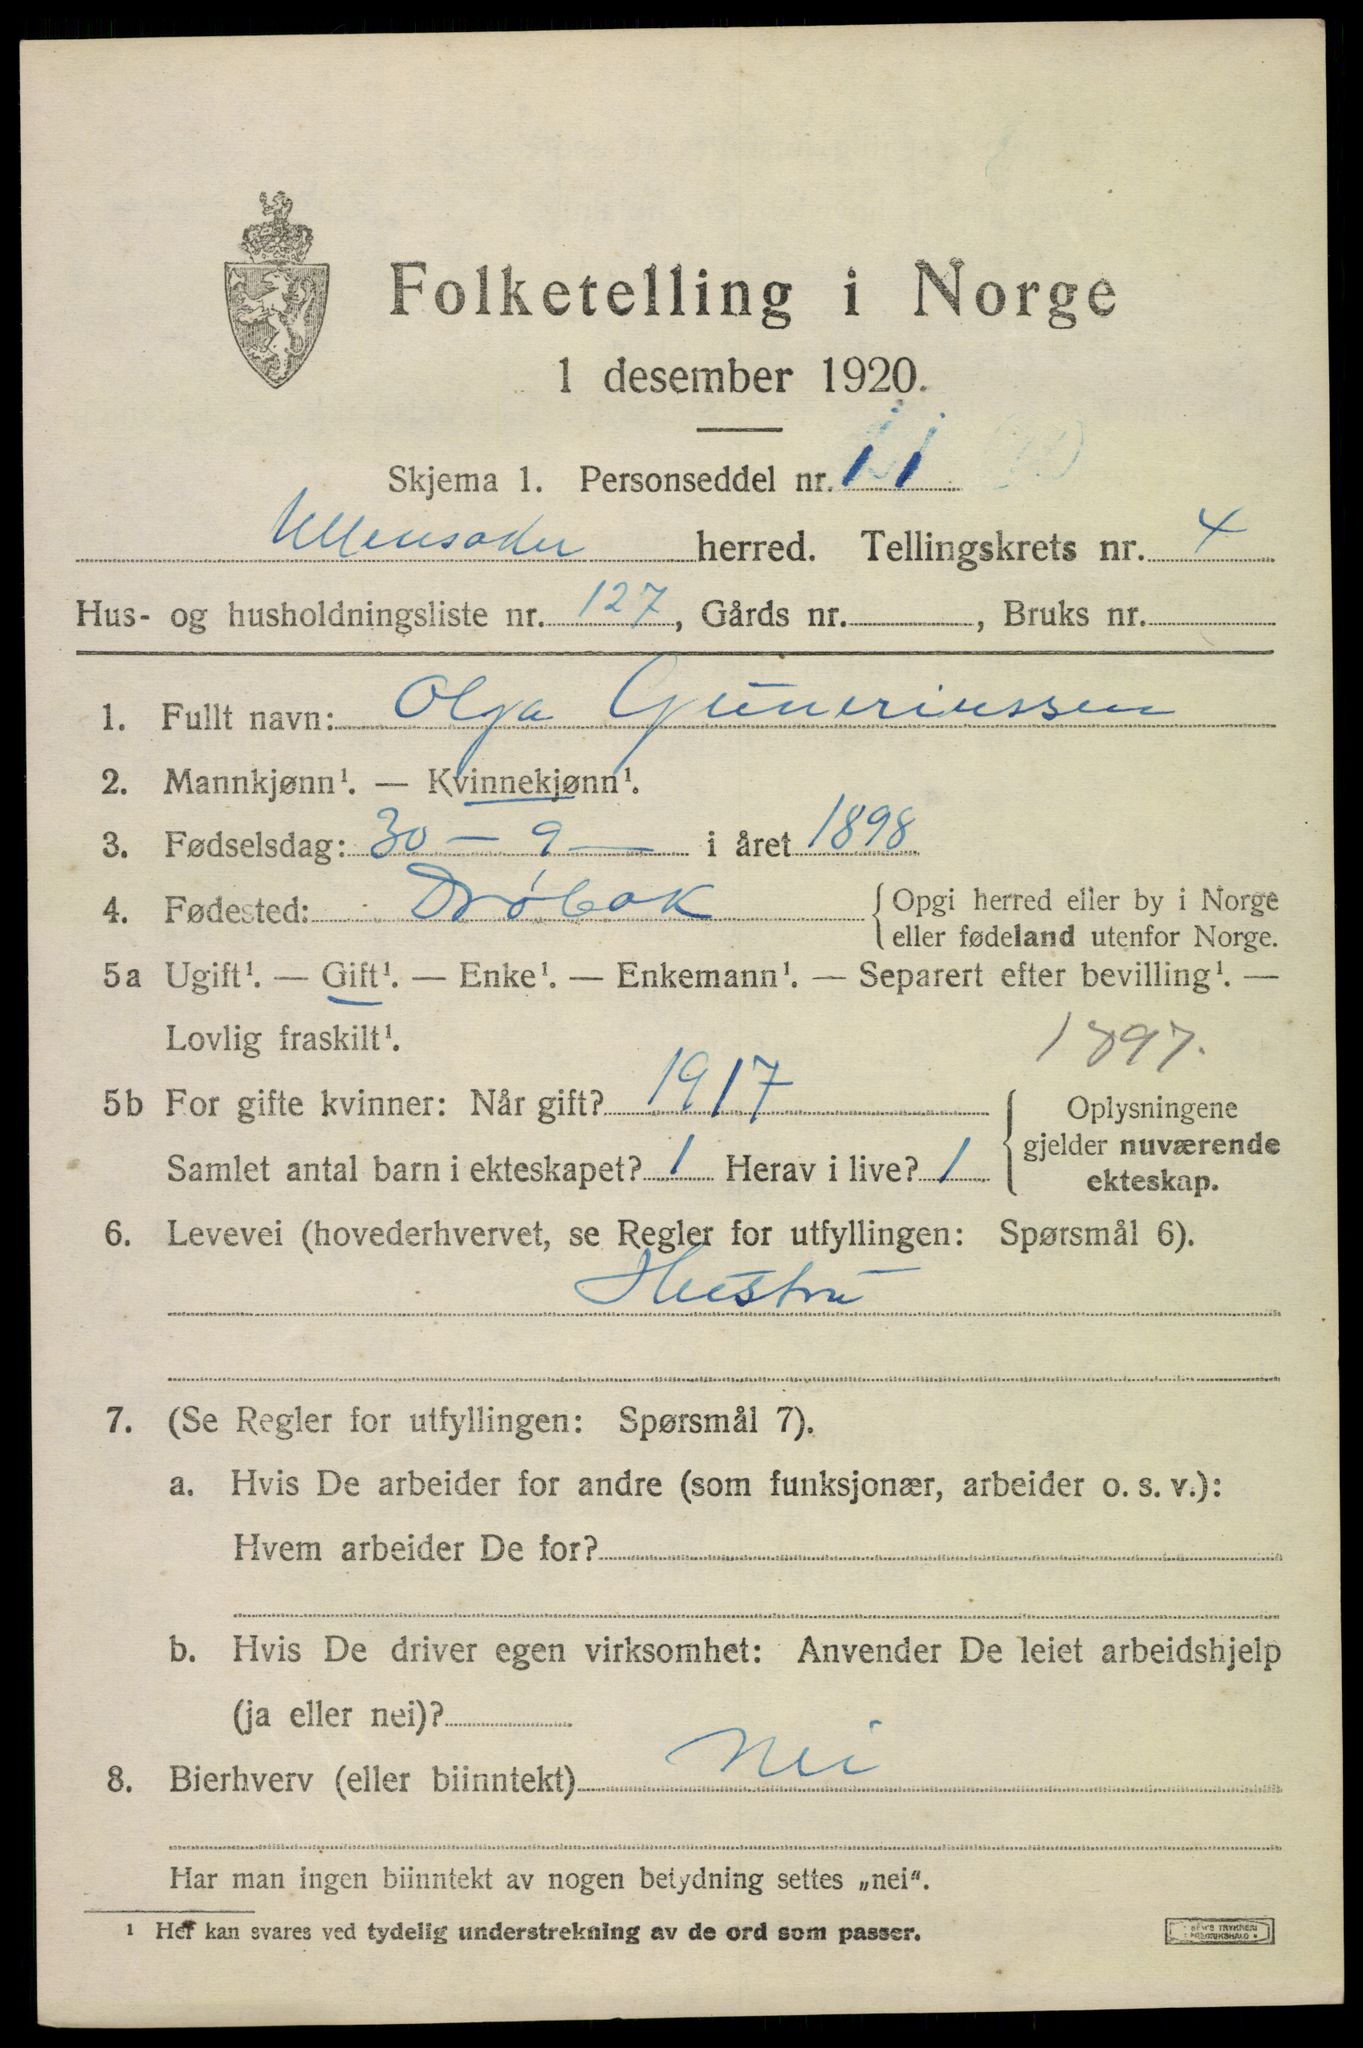 Folketelling i Norge
1 desember 1920.
Skjema 1. Personseddel nr. 11
Ullensaker herred. Tellingskrets nr. 4
Hus- og husholdningsliste nr. 127, Gårds nr. , Bruks nr.
1. Fullt navn: Olga Guneriussen
2. Mannkjønn¹. — Kvinnekjønn¹.
3. Fødselsdag: 30 — 9 — i året 1898
4. Fødested: Drøbak {Opgi herred eller by i Norge
eller fødeland utenfor Norge.
5a Ugift¹. — Gift¹. — Enke¹. — Enkemann¹. — Separert efter bevilling¹. —
Lovlig fraskilt¹. 1897.
5b For gifte kvinner: Når gift? 1917 Oplysningene
gjelder nuværende
Samlet antal barn i ekteskapet? 1 Herav i live? 1 ekteskap.
6. Levevei (hovederhvervet, se Regler for utfyllingen: Spørsmål 6).
Hustru
7. (Se Regler for utfyllingen: Spørsmål 7).
a. Hvis De arbeider for andre (som funksjonær, arbeider o. s. v.):
Hvem arbeider De for?
b. Hvis De driver egen virksomhet: Anvender De leiet arbeidshjelp
(ja eller nei)?
8. Bierhverv (eller biinntekt) Nei
Har man ingen biinntekt av nogen betydning settes „nei".
¹ Her kan svares ved tydelig understrekning av de ord som passer.